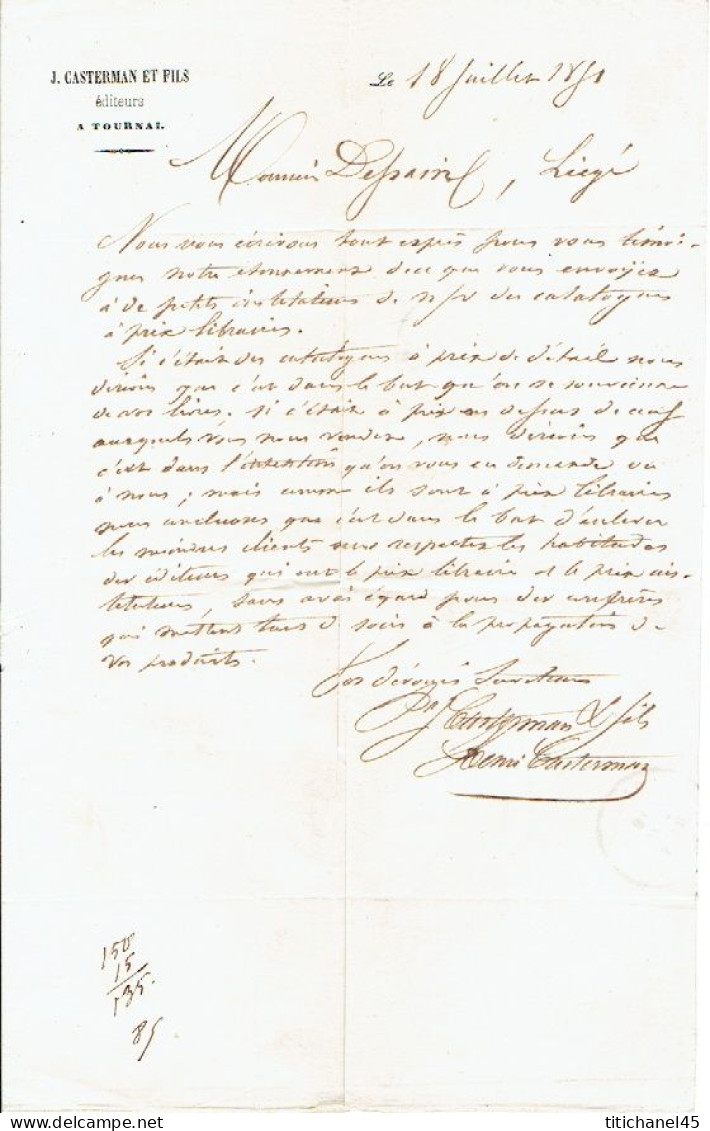 J. CASTERMAN ET FILS
éditeurs
A TOURNAI.
Le 18 Juillet 1851
Monsieur Dessain, Liège
Nous vous écrivons tout exprès pour vous témoi-
gner notre étonnement de ce que vous envoyez
à de petits instituteurs de n/v des catalogues
à prix libraires.
Si c'était des catalogues à prix de détail nous
dirions que c'est dans le but qu'on se souvienne
de vos livres. Si c'était à prix au dessus de ceux
auxquels vous nous vendez, nous dirions que
c'est dans l'intention qu'on vous en demande ou
à nous ; mais comme ils sont à prix libraires
nous concluons que c'est dans le but d'enlever
les moindres clients sans respecter les habitudes
des éditeurs qui ont le prix libraire et le prix ins-
tituteurs, sans avoir égard pour des confrères
qui mettent tant de soins à la propagation de
vos produits.
Vos dévoués Serviteurs
J Casterman & fils
Henri Casterman
150
15
135.
85
titichanel45